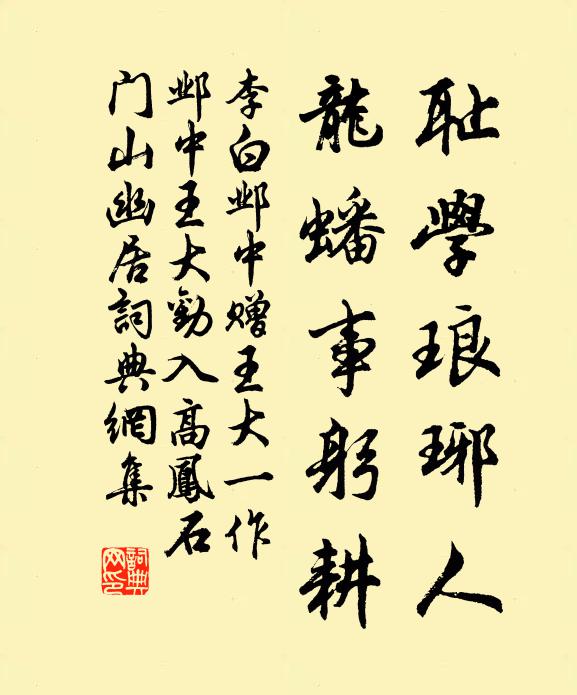 恥學琅琊人
龍蟠事躬耕
李白鄴中贈王大一作
鄴中王大勸入高鳳石
門山幽居詞典網集
詞典網印